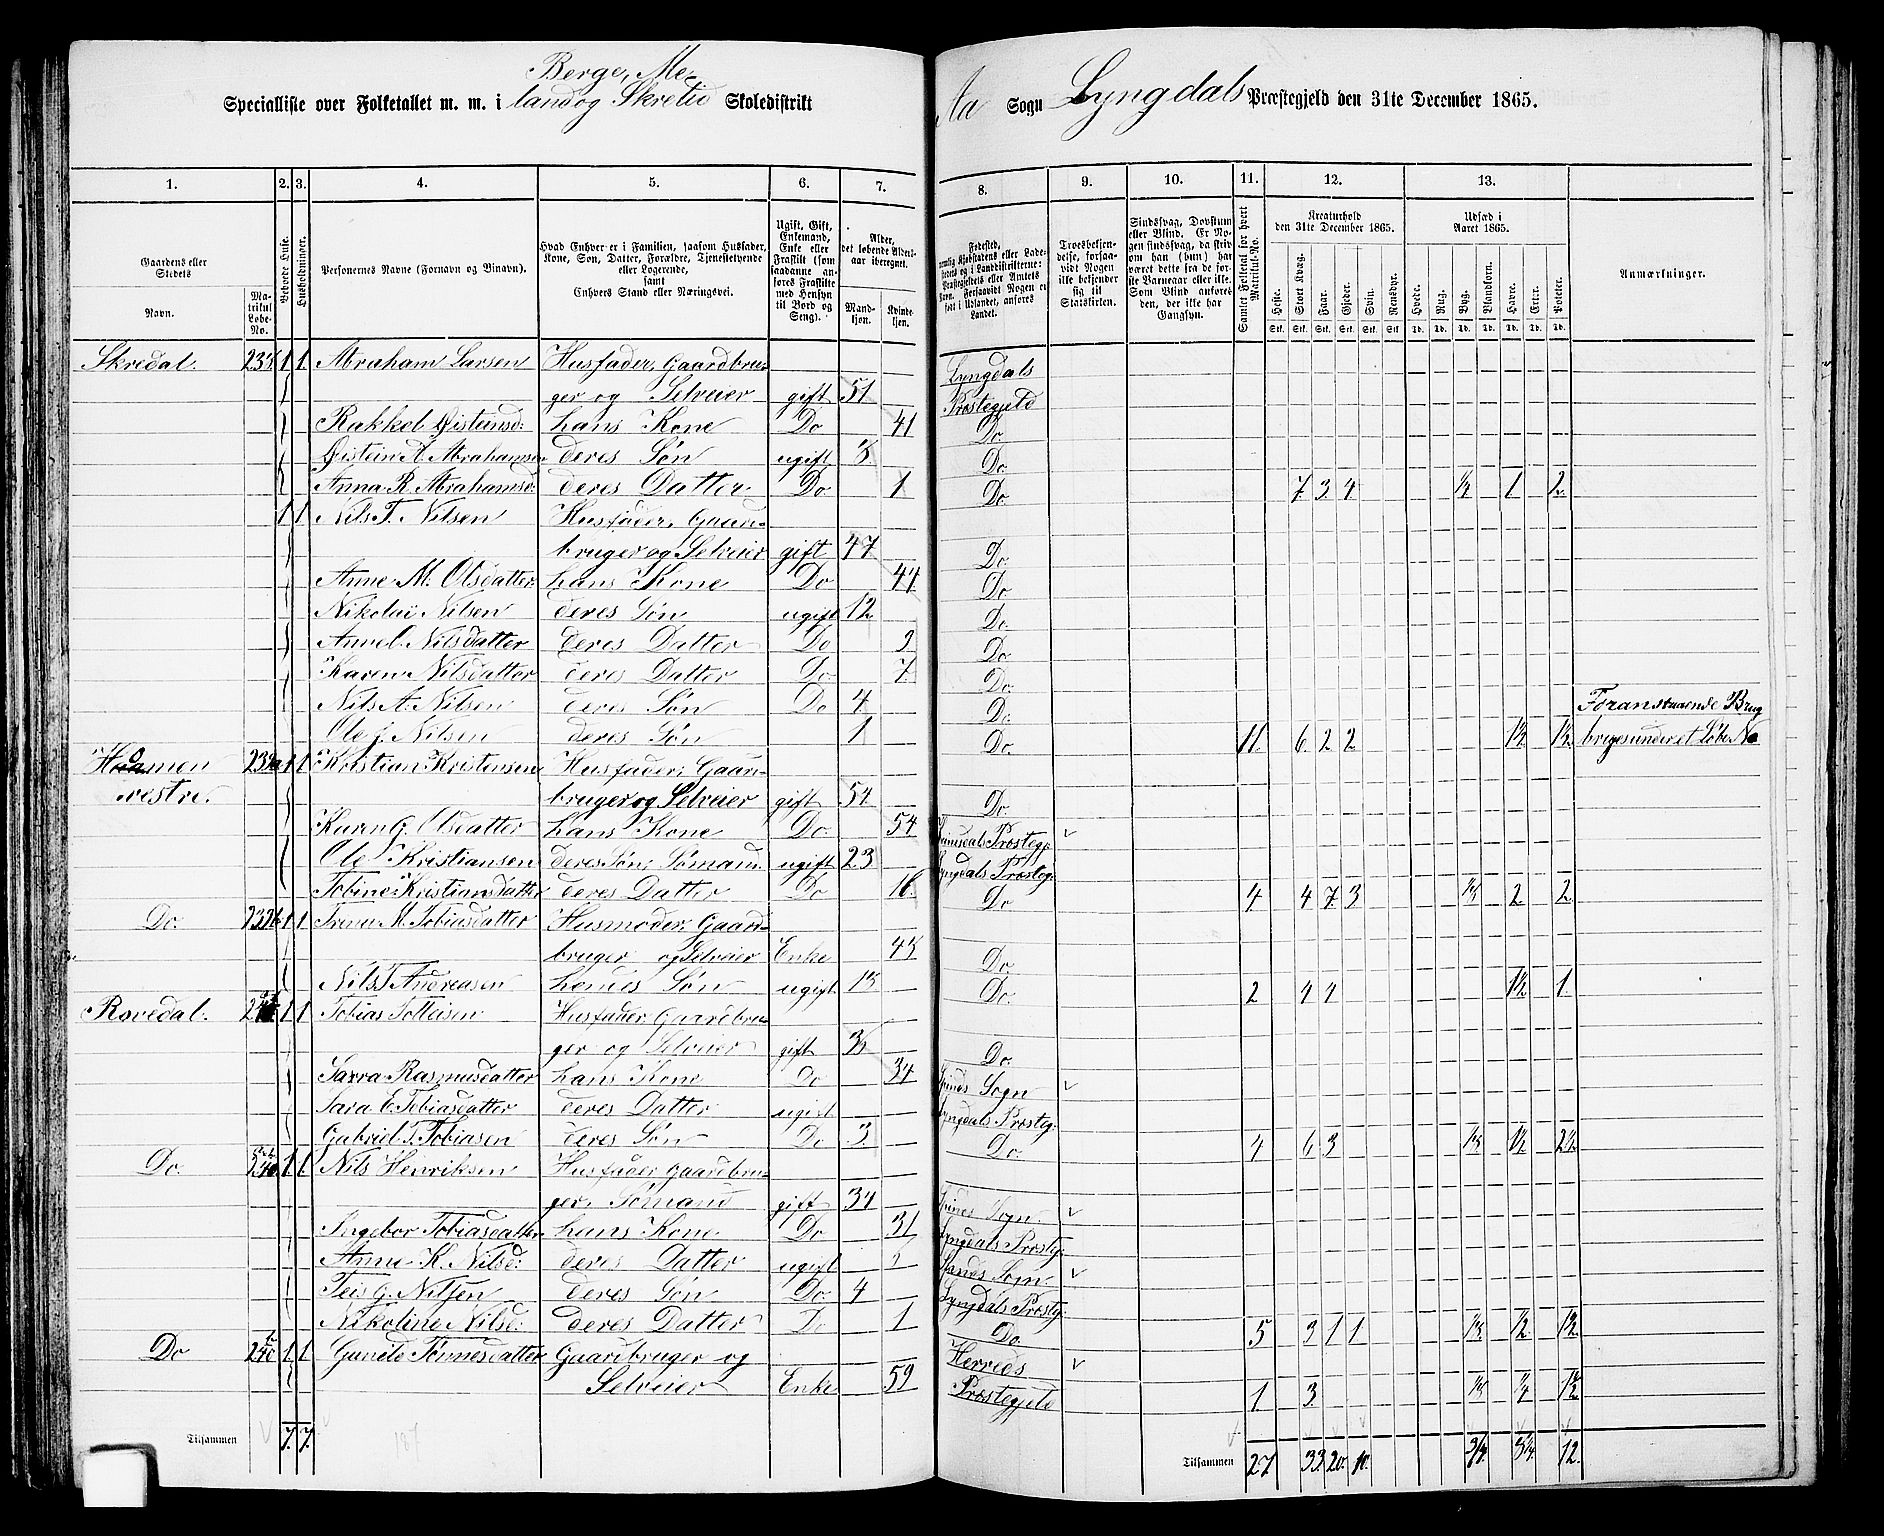 Berge, Me-
Specialliste over Folketallet m. m. i land og Skretid Skoledistrikt
Aa Sogn Lyngdals Præstegjeld den 31te December 1865.
1. 2. 3. 4. 5. 6. 7. 8. 9. 10. 11. 12. 13.
Gaardens eller Stedets
Navn.
Matrikul Løbe-No.
Beboede Huse.
Husholdninger.
Personernes Navne (Fornavn og Tilnavn).
Hvad Enhver er i Familien, saasom Husfader, Kone, Søn, Datter, Forældre, Tjenestetyende eller Logerende, samt Enhvers Stand eller Næringsvei.
Ugift, Gift, Enkemand, Enke eller Fraskilt (som saadanne anføres Fraskilte med Hensyn til Bord og Seng).
Alder, det løbende Aldersaar iberegnet.
Mandkjøn. Kvindekjøn.
Troesbekjendelse, forsaavidt Nogen ikke bekjender sig til Statskirken.
Sindssvag, Døvstum eller Blind.
Samlet Folketal for hvert Matrikul-No.
Kreaturhold den 31te December 1865.
Heste. Stort Kvæg. Faar. Gjeder. Svin. Rensdyr.
Udsæd i Aaret 1865.
Hvede. Rug. Byg. Blandkorn. Havre. Erter. Poteter.
Anmærkninger.
Skredal. 1 1 Abraham Larsen Husfader, Gaardbru- Lyngdals
ger og Selveier gift 51 Præstegjeld
Rakkel Øistensd: hans Kone Do 41 Do
Øistein A. Abrahamsen deres Søn ugift 3 Do
Anna R. Abrahamsd: deres Datter Do 1 Do 7 3 4 1 2
1 1 Nils T. Nilsen Husfader, Gaard-
bruger og Selveier gift 47 Do.
Anne M. Olsdatter hans Kone Do 44 Do
Nikolai Nilsen deres Søn ugift 12 Do.
Nilsdatter deres Datter Do Do.
Karen Nilsdatter deres Datter Do 7 Do.
Nils A. Nilsen deres Søn Do 4 Do. Foranstaaende Brug
Ole J. Nilsen deres Søn 1 Do. 11. 6 2 2 1½ bruges under et Løbe No
1 1 Kristian Kristensen Husfader, Gaard-
vestre. bruger og Selveier gift 54 Do.
Karen G. Olsdatter hans Kone Do. 54 Præstegj
Ole Kristiansen deres Søn, Sømand ugift 23 Lyngdals Præsteg:
Tobine Kristiansdatter deres Datter Do 16 Do 4 4 7 3 2 2
Do. 1 1 M. Tobiasdatter Husmoder, Gaard-
bruger og Selveier Enke Do.
Nils T Andreasen hendes Søn ugift Do. 2 4 4 1½ 1
Rovedal. 1 1 Tobias Husfader, Gaardbru-
ger og Selveier gift Do.
Sarra Rasmusdatter hans Kone Do 34 Sogn
Sara E. Tobiasdatter deres Datter ugift Lyngdals Præsteg:
Gabriel T. Tobiasen deres Søn Do 3 Do. 4 6 3 1½ 2½
Do. 1 1 Nils Henriksen Husfader, Gaardbru-
ger, Sømand gift 34 Sogn.
Ingebor Tobiasdatter hans Kone Do 31 Lyngdals Præsteg:
Anna K. Nilsd: deres Datter ugift Sogn
Teis G. Nilsen deres Søn Do 4 Lyngdals Præsteg:
Nikoline Nilsd: deres Datter Do 1 Do. 5 3 1 1 ½ 1½
Do 1 1 Gunild Tønnesdatter Gaardbruger og Herreds
Selveier Enke 59 Præstegjeld 1 3 ¼ 1½
Tilsammen 7. 7. 187
Tilsammen 27 33 20 10 12